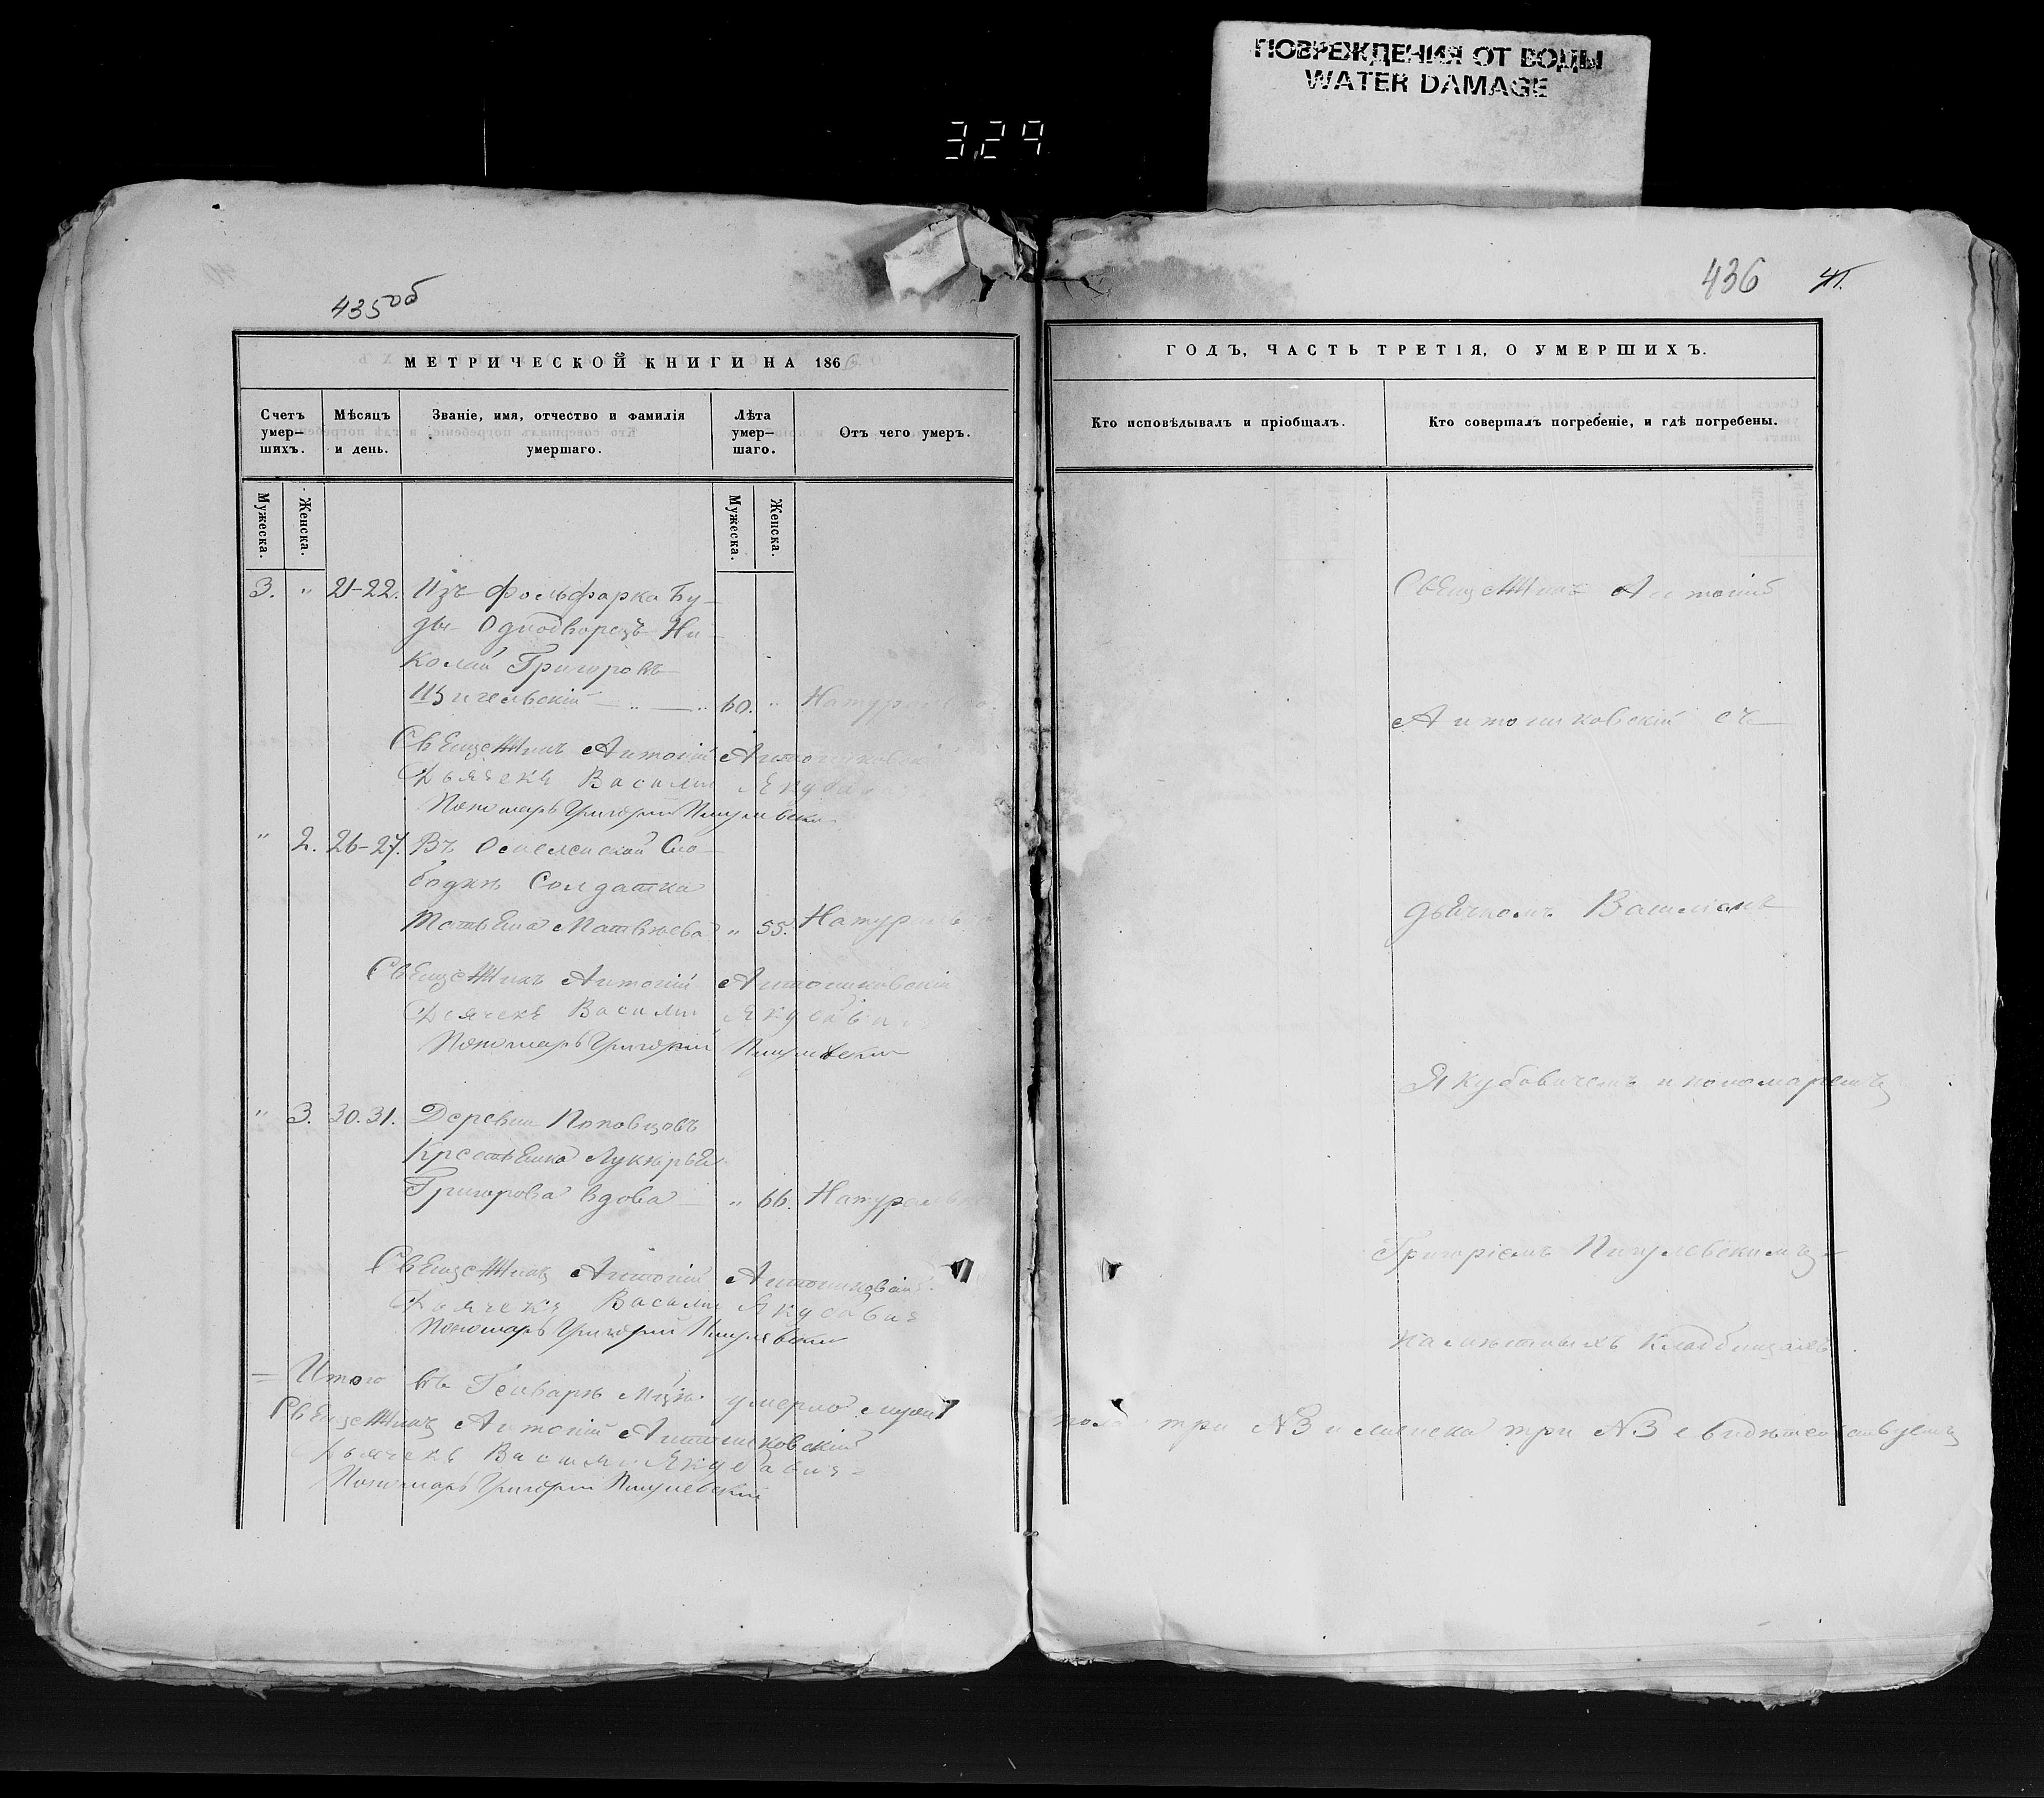 ПОВРЕЖДЕНИЯ ОТ ВОДЫ
WATER DAMAGE
3,29
435об
МЕТРИЧЕСКОЙ КНИГИ НА 1866
Счетъ умер-шихъ.
Мѣсяцъ и день.
Званіе, имя, отчество и фамилія умершаго.
Лѣта умер-шаго.
Отъ чего умеръ.
Мужеска.
Женска.
Мужеска.
Женска.
3. " 21-22. Изъ фольфарка Бу-
ды Однодворецъ Ни-
колай Григоровъ
60. " Натурально.
Священникъ Антоній Антониковскій
Дьячекъ Василій Якубови
Пономарь Григорій Пигулевски
" 2. 26-27. Въ Сло-
бодкѣ Солдатка
Татьяна Матвѣева " 55. Натурально
Священникъ Антоній Антониковскій
Дьячекъ Василій Якубови
Пономарь Григорій Пигулевски
" 3. 30.31. Деревни Поповцовъ
Крестьянка Лукерья
Григорова вдова " 66. Натурально
Священникъ Антоній Антониковскій.
Дьячекъ Василій Якубовичъ
Пономарь Григорій Пигулевски
= Итого въ Генварѣ м-цѣ умерло муж
Священникъ Антоній Антониковскій
Дьячекъ Василій Якубовичъ
Пономарь Григорій Пигулевский
436 41.
ГОДЪ, ЧАСТЬ ТРЕТІЯ, О УМЕРШИХЪ.
Кто исповѣдывалъ и пріобщалъ.
Кто совершалъ погребеніе, и гдѣ погребены.
Священникъ Антоній
Антониковскій съ
дьячкомъ Василіемъ
Якубовичемъ и пономаремъ
Григоріемъ Пигулевскимъ
на мѣстныхъ кладбищахъ
пола три №3 и женска три №3 свидѣтельствуемъ